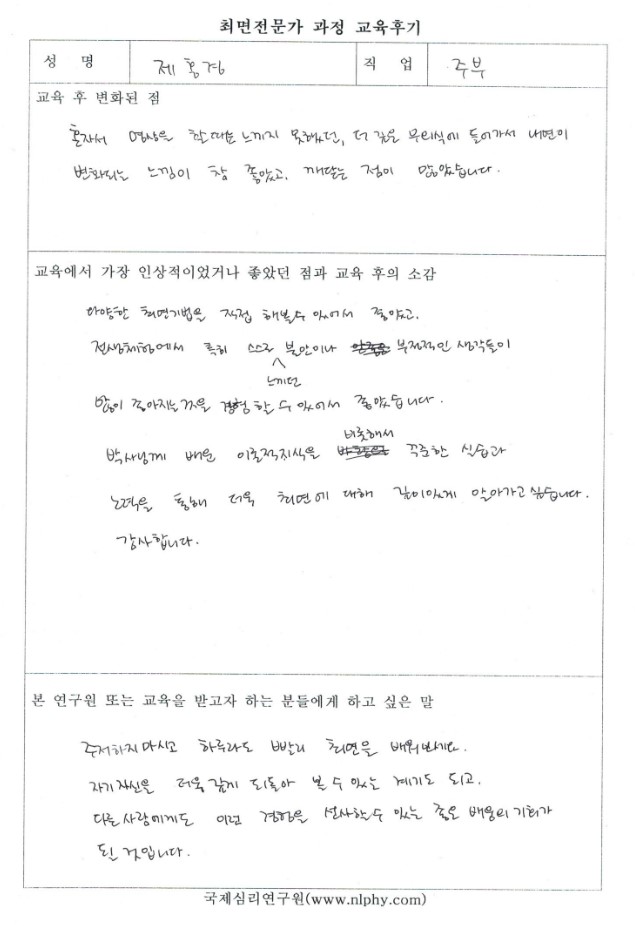 최면전문가 과정 교육후기
성 명 제홍경 직 업 주부
교육 후 변화된 점
혼자서 명상을 할때는 느끼지 못했던, 더 깊은 무의식에 들어가서 내면이
변화되는 느낌이 참 좋았고, 깨닫는 점이 많았습니다.
교육에서 가장 인상적이었거나 좋았던 점과 교육 후의 소감
다양한 최면기법을 직접 해볼수 있어서 좋았고,
전생체험에서 특히 스스로 불안이나 부정적인 생각들이
느끼던
많이 좋아지는것을 경험할 수 있어서 좋았습니다.
비롯해서
박사님께 배운 이론적지식을 꾸준한 실습과
노력을 통해 더욱 최면에 대해 깊이있게 알아가고 싶습니다.
감사합니다.
본 연구원 또는 교육을 받고자 하는 분들에게 하고 싶은 말
주저하지마시고 하루라도 빨리 최면을 배워보세요.
자기자신을 더욱 깊게 되돌아 볼 수 있는 계기도 되고,
다른사람에게도 이런 경험을 선사할수 있는 좋은 배움의 기회가
될 것입니다.
국제심리연구원(www.nlphy.com)